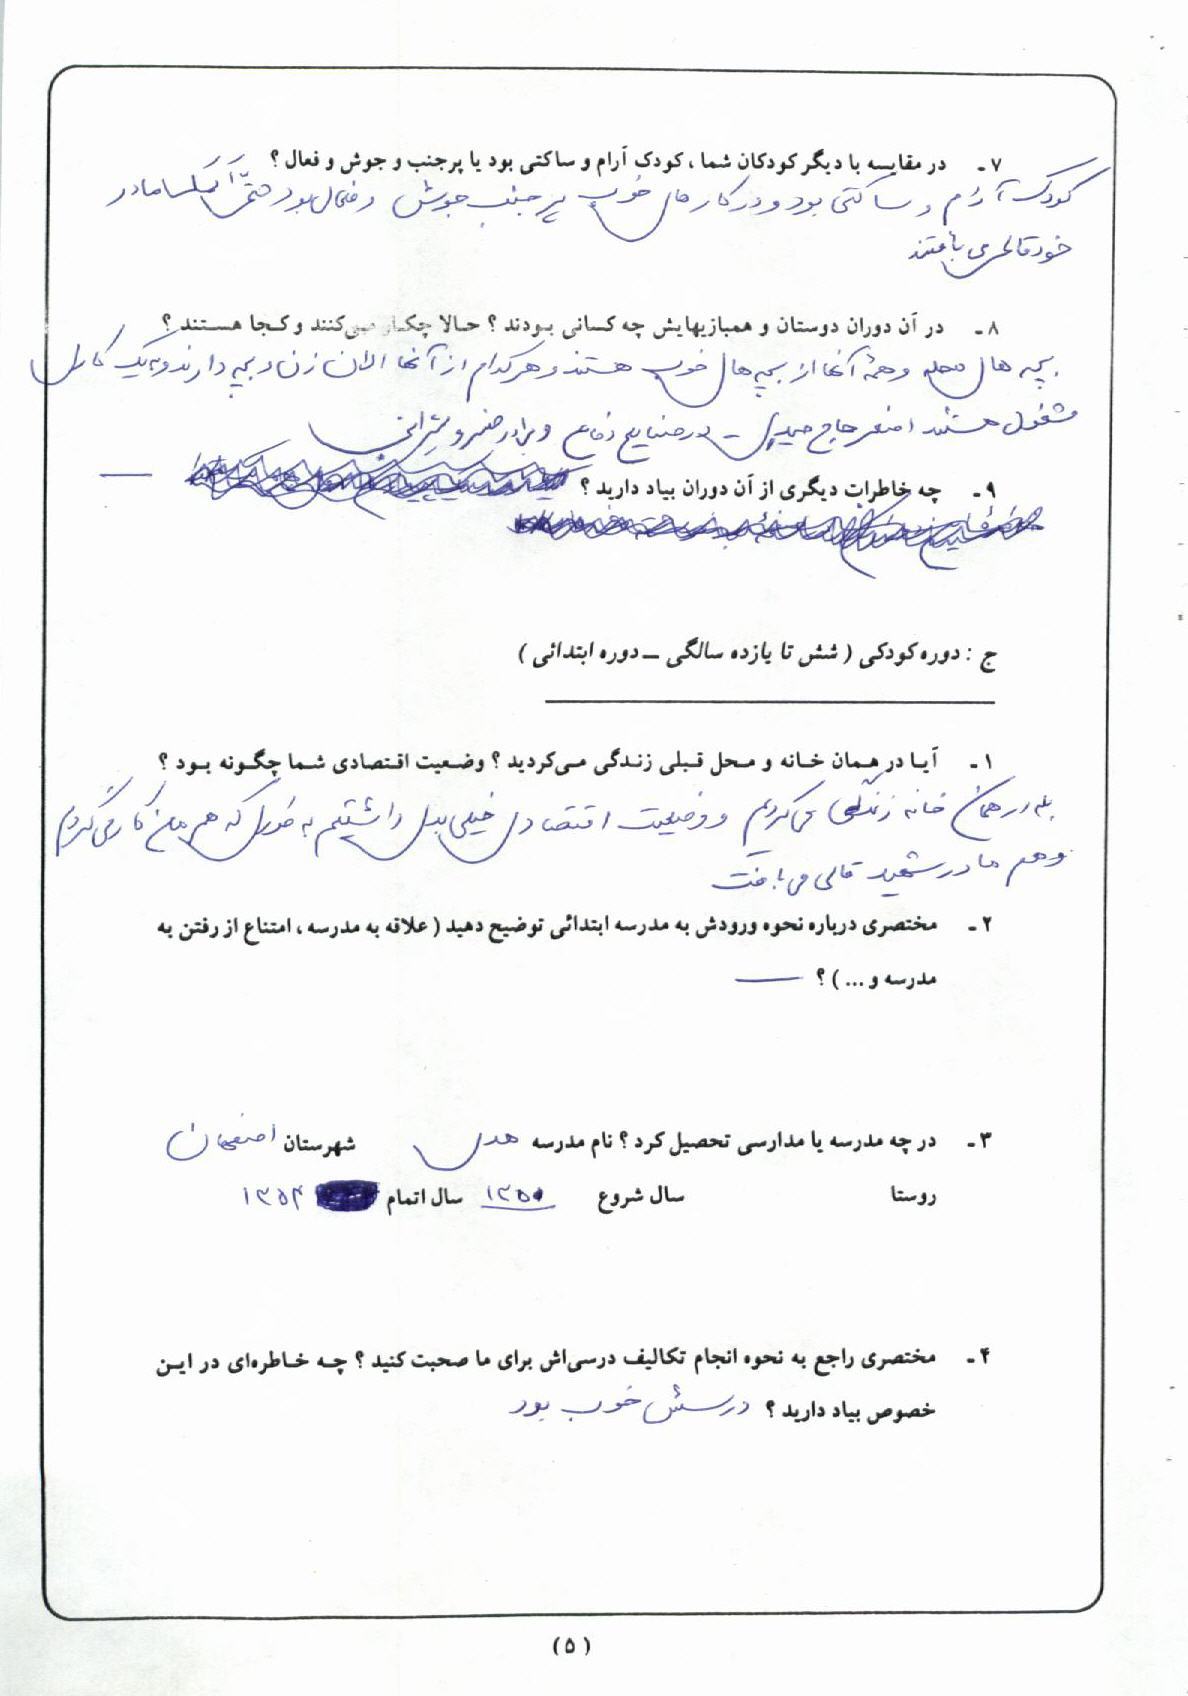 ۷ـ در مقایسه با دیگر کودکان شما ، کودک آرام و ساکتی بود یا پرجنب و جوش و فعال ؟
کودک آرام و ساکتی بود و در کارهای خوب پر جنب جوش و فعال بود حتی مادر
خود قالی می بافتند
۸ـ در آن دوران دوستان و همبازیهایش چه کسانی بودند ؟ حالا چکار می‌کنند و کجا هستند ؟
بچه های محله و همهٔ آنها از بچه های خوب هستند و هر کدام از آنها الان زن و بچه دارند و به یک کاری
مشغول هستند اصغر حاج حیدری ـ در صنایع دفاع و برادر خسرو
۹ـ چه خاطرات دیگری از آن دوران بیاد دارید ؟ —
ج : دوره کودکی ( شش تا یازده سالگی ـ دوره ابتدائی )
۱ـ آیا در همان خانه و محل قبلی زندگی می‌کردید ؟ وضعیت اقتصادی شما چگونه بود ؟
بله در همان خانه زندگی می کردیم و وضعیت اقتصادی خیلی بدی داشتیم به طوری که هم من کار می کردم
و هم مادر شهید قالی می بافت
۲ـ مختصری درباره نحوه ورودش به مدرسه ابتدائی توضیح دهید ( علاقه به مدرسه ، امتناع از رفتن به
مدرسه و ... ) ؟ —
۳ـ در چه مدرسه یا مدارسی تحصیل کرد ؟ نام مدرسه هدی شهرستان اصفهان
روستا سال شروع ۱۳۵۰ سال اتمام ۱۳۵۴
۴ـ مختصری راجع به نحوه انجام تکالیف درسی‌اش برای ما صحبت کنید ؟ چه خاطره‌ای در این
خصوص بیاد دارید ؟ درسش خوب بود
( ۵ )